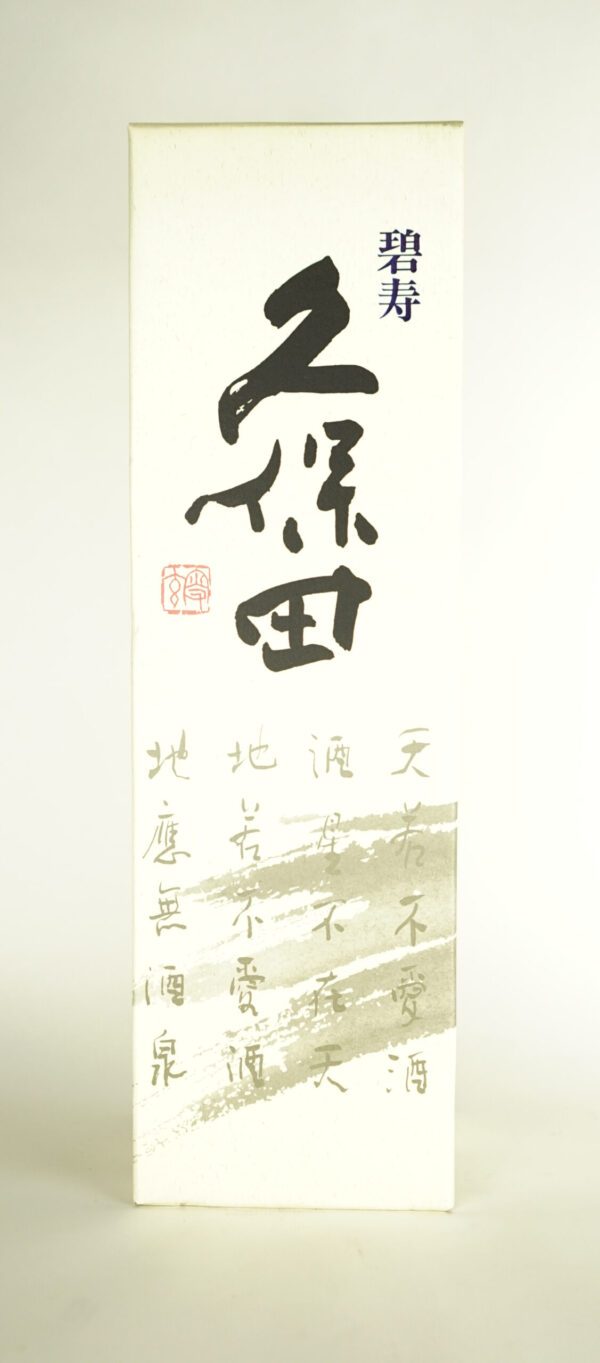 碧寿
久保田
天若不愛酒
酒星不在天
地若不愛酒
地應無酒泉